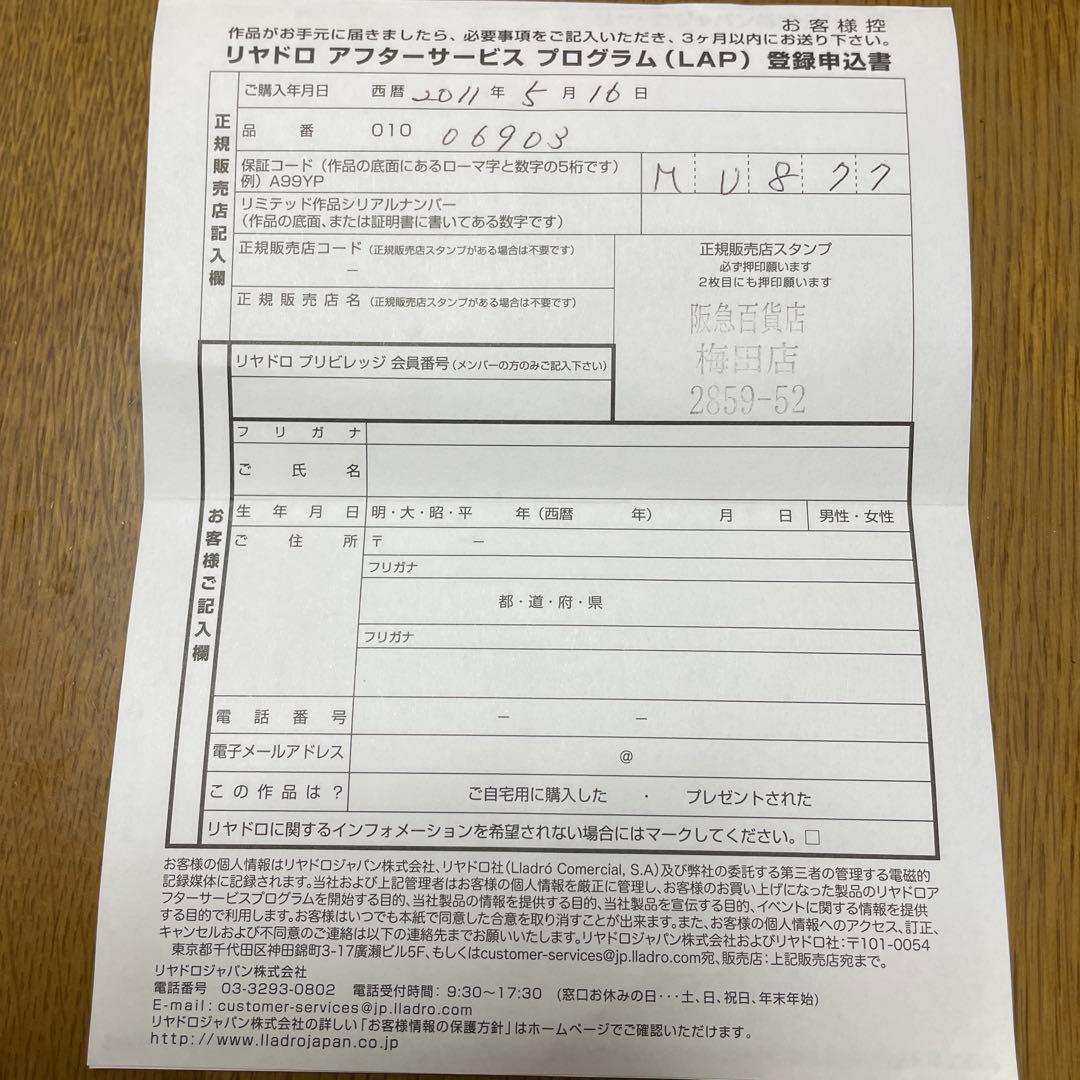 お客様控
作品がお手元に届きましたら、必要事項をご記入いただき、3ヶ月以内にお送り下さい。
リヤドロ アフターサービス プログラム(LAP) 登録申込書
正規販売店記入欄
ご購入年月日 西暦 2011 年 5 月 16 日
品番 010 06903
保証コード(作品の底面にあるローマ字と数字の5桁です)
例)A99YP
M U 8 7 7
リミテッド作品シリアルナンバー
(作品の底面、または証明書に書いてある数字です)
正規販売店コード(正規販売店スタンプがある場合は不要です)
－
正規販売店名(正規販売店スタンプがある場合は不要です)
正規販売店スタンプ
必ず押印願います
2枚目にも押印願います
阪急百貨店
梅田店
2859-52
リヤドロ プリビレッジ 会員番号(メンバーの方のみご記入下さい)
お客様ご記入欄
フリガナ
ご氏名
生年月日 明・大・昭・平 年(西暦 年) 月 日 男性・女性
ご住所 〒 －
フリガナ
都・道・府・県
フリガナ
電話番号 － －
電子メールアドレス @
この作品は? ご自宅用に購入した ・ プレゼントされた
リヤドロに関するインフォメーションを希望されない場合にはマークしてください。□
お客様の個人情報はリヤドロジャパン株式会社、リヤドロ社(Lladró Comercial, S.A)及び弊社の委託する第三者の管理する電磁的
記録媒体に記録されます。当社および上記管理者はお客様の個人情報を厳正に管理し、お客様のお買い上げになった製品のリヤドロア
フターサービスプログラムを開始する目的、当社製品の情報を提供する目的、当社製品を宣伝する目的、イベントに関する情報を提供
する目的で利用します。お客様はいつでも本紙で同意した合意を取り消すことが出来ます。また、お客様の個人情報へのアクセス、訂正、
キャンセルおよび不同意のご連絡は以下の連絡先までお願いいたします。リヤドロジャパン株式会社およびリヤドロ社:〒101-0054
東京都千代田区神田錦町3-17廣瀬ビル5F、もしくはcustomer-services@jp.lladro.com宛、販売店:上記販売店宛まで。
リヤドロジャパン株式会社
電話番号 03-3293-0802 電話受付時間: 9:30～17:30 (窓口お休みの日･･･土、日、祝日、年末年始)
E-mail: customer-services@jp.lladro.com
リヤドロジャパン株式会社の詳しい「お客様情報の保護方針」はホームページでご確認いただけます。
http://www.lladrojapan.co.jp